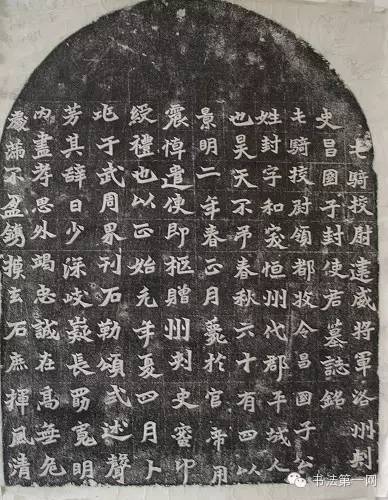 屯騎校尉建威將軍洛州刾
史昌國子封使君墓誌銘
屯騎校尉領都牧令昌國子公
姓封字和突恒州代郡平城人
也昊天不弔春秋六十有四以
景明二年春正月薨於官帝用
震悼遣使即柩贈州刾史蜜印
綬禮也以正始元年夏四月卜
兆于武周界刊石勒頌式述聲
芳其辞曰少深岐嶷長勗寬明
內盡孝思外竭忠誠在高無危
處滿不盈鐫玄石庶揮風清
书法第一网